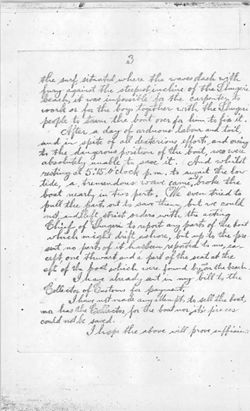 3
the surf situated where the waves dash with
fury against the steepest incline of the Shugri
beach, it was impossible for the carpenter to
work or for the boys together with the Shugri
people to turn the boat over for him to fix it.
After a day of arduous labour and toil,
and in spite of all dexterious efforts, and owing
to the dangerous position of the boat, we were
absolutely unable to save it. And whilst
resting at 5:15 o'clock p.m. to await the low
tide, a tremendous wave came, broke the
boat nearly in two parts. We even tried to
pull the parts out to save them, but we could
not, and left strict orders with the acting
Chief of to report any parts of the boat
which might drift ashore, but up to the pre-
sent no parts of it has been reported to me, ex-
cept one thwart and a part of the seat at the
aft of the boat which were found by on the beach.
I have already sent in my bill to the
Collector of Customs for payment.
I have not made any attempt to sell the boat,
nor has the Collector, for the boat nor its pieces
could not be saved.
I hope the above will prove sufficien-